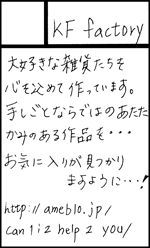 KF factory
大好きな雑貨たちを
心を込めて作っています。
手しごとならではのあたた
かみのある作品を・・・
お気に入りが見つかり
ますように・・・!
http://ameblo.jp/
can1i2help2you/